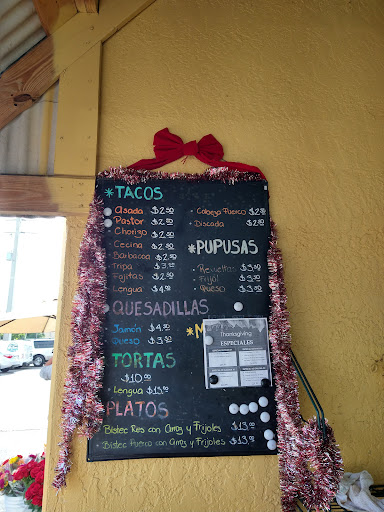 *TACOS
• Asada $2.50
• Pastor $2.50
• Chorizo $2.50
• Cecina $2.50
• Barbacoa $2.50
• Tripa $3.00
• Fajitas $2.50
• Lengua $4.50
• Cabeza Puerco $2.50
• Discada $2.50
*PUPUSAS
• Revueltas $3.50
• Frijol $3.50
• Queso $3.50
QUESADILLAS
• Jamón $4.50
• Queso $3.50
*M
Thanksgiving
ESPECIALES
TORTAS
$10.00
• Lengua $13.00
PLATOS
• Bistec Res con Arroz y Frijoles $13.00
• Bistec Puerco con Arroz y Frijoles $13.00